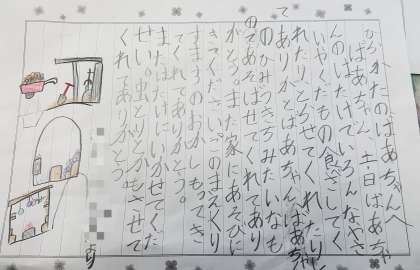 ひらかたのばあちゃんへ
ばあちゃん、土日ばあちゃ
んのはたけでいろんなやさ
いやくだもの食べさしてく
れたりとらせてくれたりし
てありがとうばあちゃん、ばあちゃん
のひみつきちみたいなも
のであそばせてくれてあり
がとう。また家にあそびに
きてください。このまえくり
すますのおかしもってき
てくれてありがとう。
またはたけにいかせてくだ
せい。虫とりとかもさせて
くれてありがとう。
より